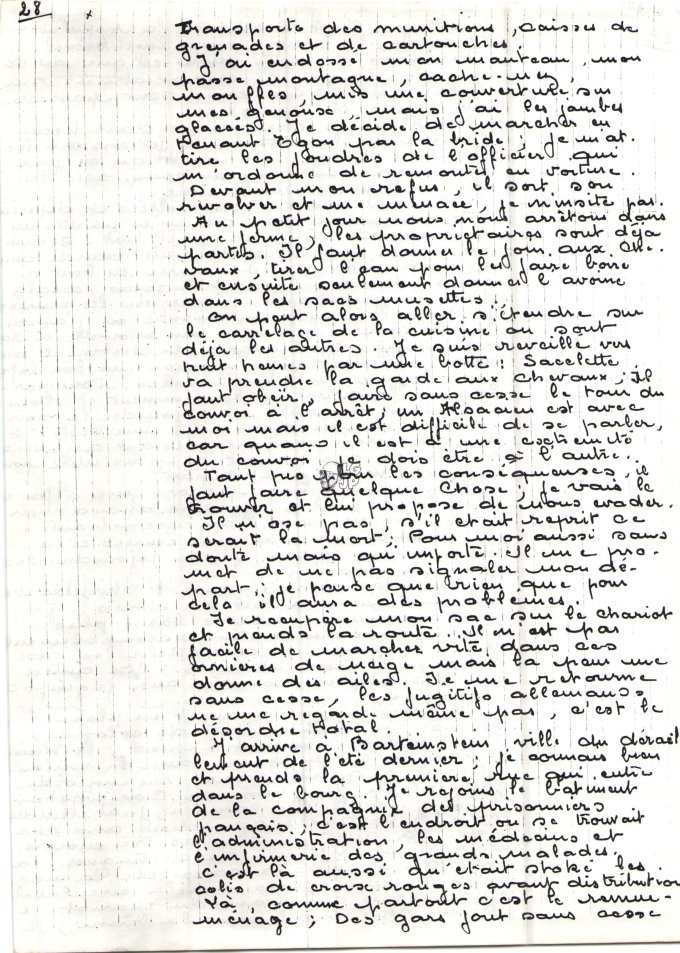 28
transporte des munitions, caisses de
grenades et de cartouches.
J'ai endossé mon manteau, mon
passe montagne, cache-nez,
mouffles, mis une couverture sur
mes genoux, mais j'ai les jambes
glacées. Je décide de marcher en
tenant Egon par la bride; je m'at.
tire les foudres de l'officier qui
m'ordonne de remonter en voiture.
Devant mon refus, il sort son
revolver et me menace, je n'insite pas.
Au petit jour nous nous arrêtons dans
une ferme, les propriétaires sont déjà
partis. Il faut donner le foin aux che.
vaux, tirer l'eau pour les faire boire
et ensuite seulement donner l'avoine
dans les sacs musettes.
On peut alors aller s'étendre sur
le carrelage de la cuisine ou sont
déjà les autres. Je suis reveillé vers
huit heures par une botte: Sacelette
va prendre la garde aux chevaux; Il
faut obéir, faire sans cesse le tour du
convoi à l'arrêt; un Alsacien est avec
moi mais il est difficile de se parler,
car quand il est à une exctremité
du convoi je dois être à l'autre.
Tant pis pour les conséquenses, il
faut faire quelque chose; je vais le
trouver et lui propose de nous evader.
Il n'ose pas, s'il était reprit ce
serait la mort; Pour moi aussi sans
doute mais qu'importe. Il me pro-
met de ne pas signaler mon dé-
part; je pense que rien que pour
cela il aura des problèmes.
Je recupère mon sac sur le chariot
et prends la route. Il n'est pas
facile de marcher vite dans ces
ornieres de neige mais la peur me
donne des ailes. Je me retourne
sans cesse, les fugitifs allemands
ne me regarde même pas, c'est le
désordre total.
J'arrive à Bartenstein, ville du dérail
lement de l'été dernier; je connais bien
et prends la première rue qui entre
dans le bourg. Je rejoins le bâtiment
de la compagnie des prisonniers
français; c'est l'endroit ou se trouvait
l'administration, les médecins et
l'infirmerie des grands malades.
C'est là aussi qu'était stoké les
colis de croix rouges avant distribution
Là, comme partout c'est le remue-
ménage; Des gars font sans cesse